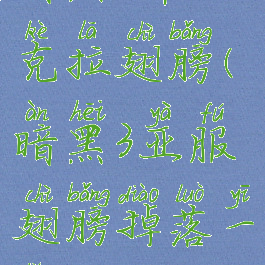 kè lā chì bǎng
克拉翅膀(
àn hēi yà fú
暗黑3亚服
chì bǎng diào luò yī
翅膀掉落一